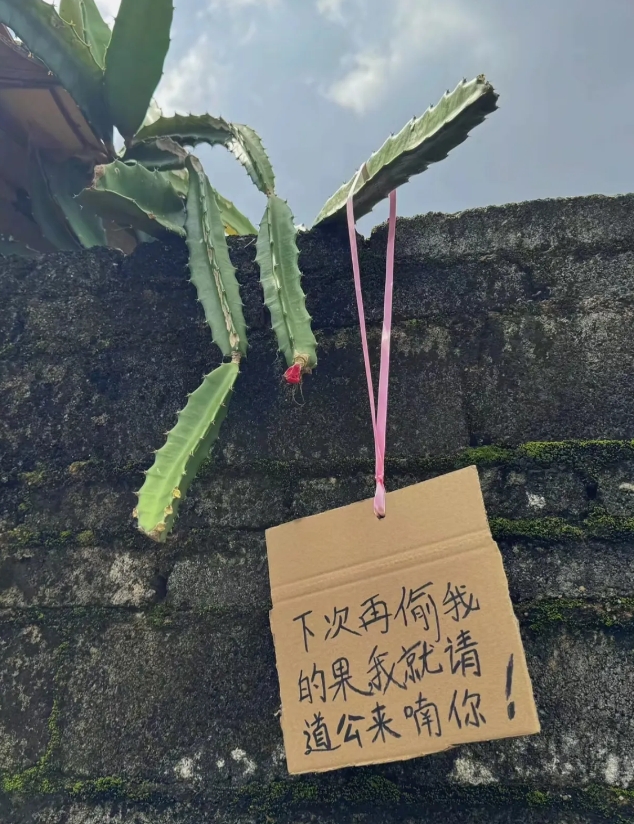 下次再偷我
的果我就请
道公来喃你！